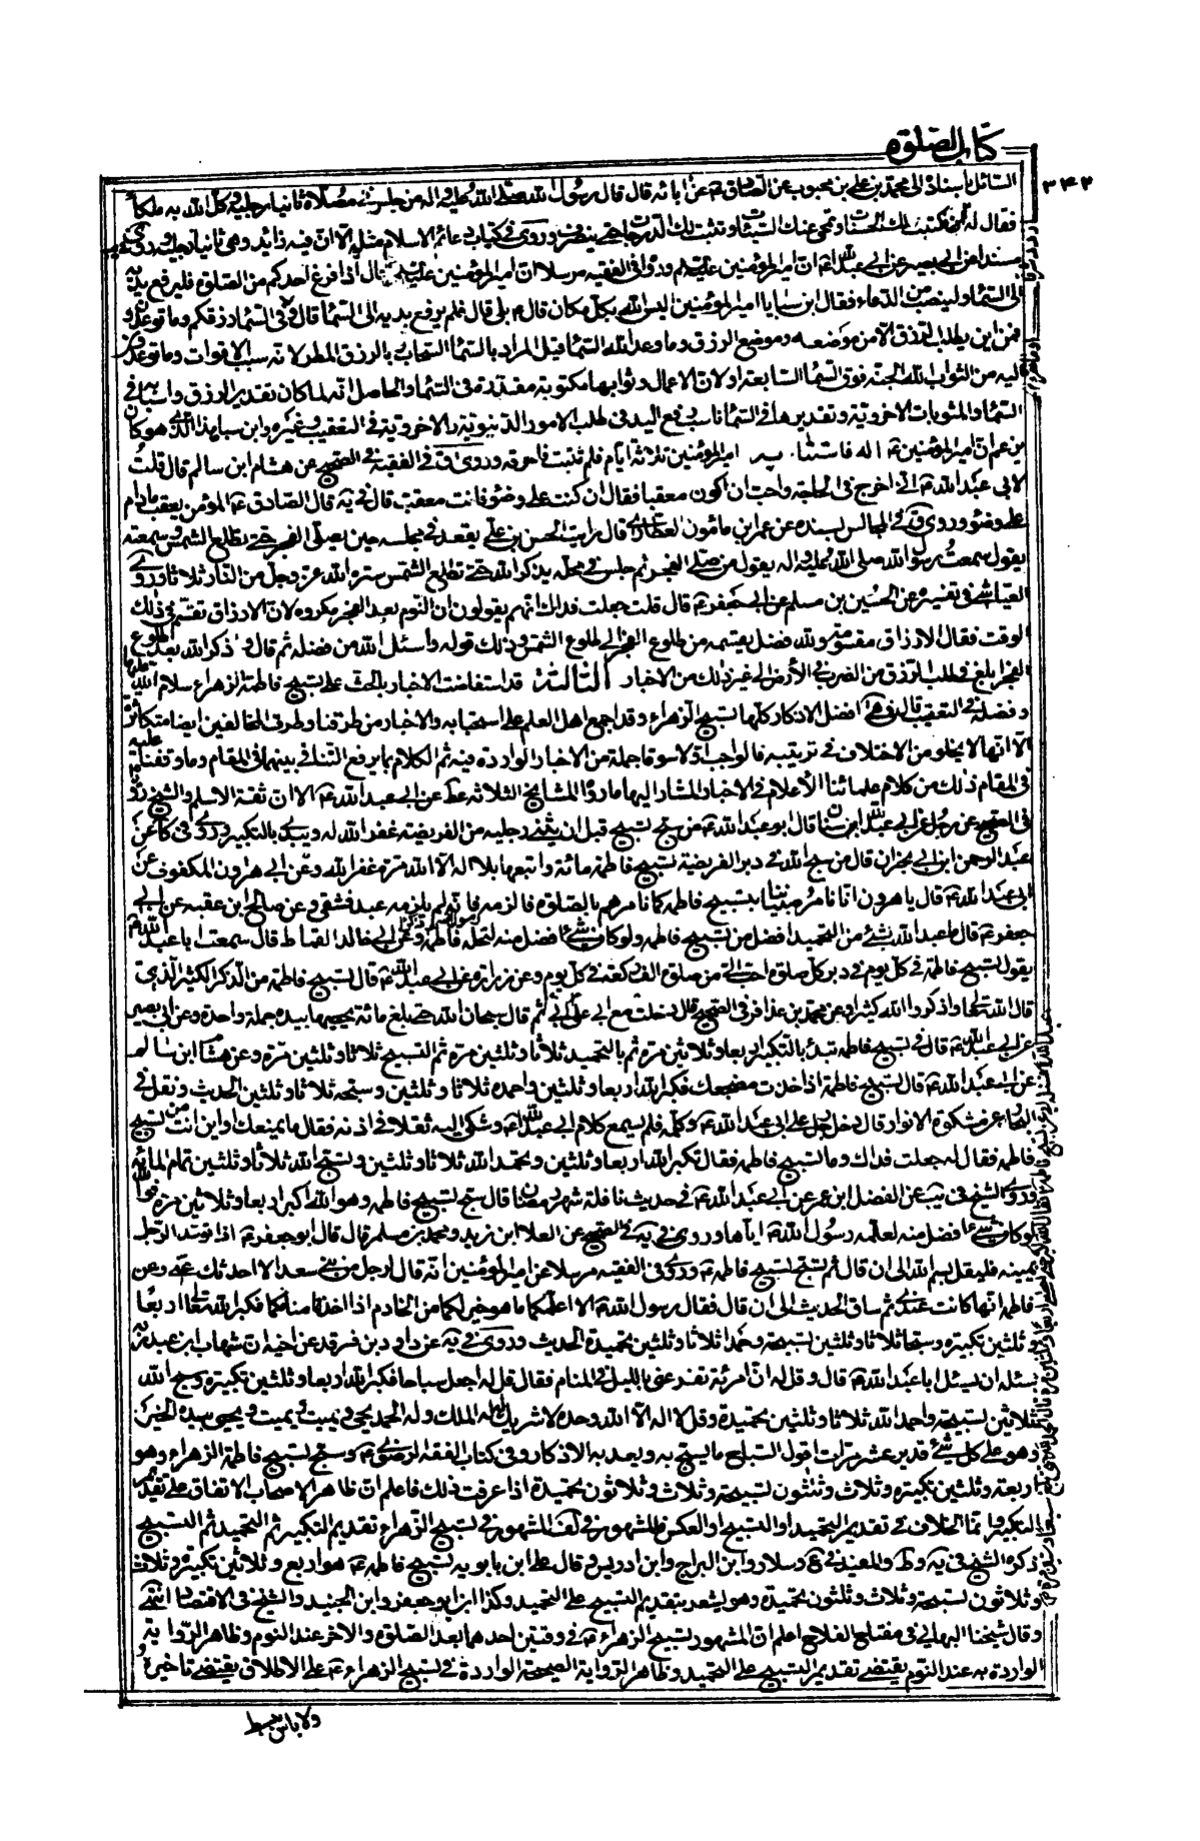 كتاب الصلوة
٣٤٣
السائل باسناده الى محمد بن علي بن محبوب عن الصادق عن ابائه قال قال رسول الله صلى الله عليه واله من جلس في مصلاه ثانيا رجليه وكل الله به ملكا
فقال له تكتب لك الحسنات وتمحى عنك السيئات وتثبت لك الدرجات حتى ينصرف وروى في كتاب دعائم الاسلام مثله الا ان فيه زائد وهي ثانيا رجليه وروى
مسندا عن ابي بصير عن ابي عبد الله ان امير المؤمنين ورواه في الفقيه مرسلا ان امير المؤمنين قال اذا فرغ احدكم من الصلوة فليرفع يديه
الى السماء ولينصب من الدعاء فقال ابن سبا يا امير المؤمنين اليس الله بكل مكان قال بلى قال فلم يرفع يديه الى السماء قال وفي السماء رزقكم وما توعدون
فمن اين يطلب الرزق الا من موضعه وموضع الرزق وما وعد الله السماء قيل المراد بالسماء السحاب بالرزق المطر لانه سبب الاقوات وما توعدون
اليه من الثواب الجنة فوق السماء السابعة او لان الاعمال وثوابها مكتوبة مقدرة في السماء والحاصل انه لما كان تقدير الرزق واسبابه في
السماء والمثوبات الاخروية وتقديرها في السماء ناسب رفع اليد في طلب الامور الدنيوية والاخروية في التعقيب وغيره وابن سبا هذا الذي هو كان
يزعم ان امير المؤمنين اله فاستتابه امير المؤمنين ثلاثة ايام فلم يتب فاحرقه وروى في الفقيه في الصحيح عن هشام ابن سالم قال قلت
لابي عبد الله اني اخرج في الحاجة واحب ان اكون معقبا فقال ان كنت على وضوء فانت معقب قال في يه قال الصادق المؤمن يعقب مادام
على وضوء وروى في المجالس بسنده عن عمير بن مامون العطاردي قال رايت الحسن بن علي يقعد في مجلسه حين يصلي الفجر حتى تطلع الشمس وسمعته
يقول سمعت رسول الله صلى الله عليه واله يقول من صلى الفجر ثم جلس في محله يذكر الله حتى تطلع الشمس ستره الله عز وجل من النار ثلاثا وروى
العياشي في تفسيره عن الحسين بن مسلم عن ابي جعفر قال قلت جعلت فداك انهم يقولون ان النوم بعد الفجر مكروه لان الارزاق تقسم في ذلك
الوقت فقال الارزاق مقسومة ولله فضل يقسمه من طلوع الفجر الى طلوع الشمس وذلك قوله واسئلوا الله من فضله ثم قال وذكر الله بعد طلوع
الفجر ابلغ في طلب الرزق من الضرب في الأرض الى غير ذلك من الاخبار الثالثة قد استفاضت الاخبار بالحث على تسبيح فاطمة الزهراء سلام الله عليها
وفضله في التعقيب افضل الاذكار كلها تسبيح الزهراء وقد اجمع اهل العلم على استحبابه والاخبار من طرقنا وطرق المخالفين ايضا متكاثرة
الا انها لا يخلو من الاختلاف في ترتيبه فالواجب اولا سوق جملة من الاخبار الواردة فيه ثم الكلام بما يرفع التنافي بينهما في المقام وما وقفنا عليه
في المقام ذلك من كلام علمائنا الأعلام فمن الاخبار المشار اليها ما رواه المشايخ الثلاثة عن ابي عبد الله الا ان ثقة الاسلام والشيخ روياه
في الصحيح عن رجل عن ابي عبد الله ابن سنان قال ابو عبد الله من سبح تسبيح قبل ان يثني رجليه من الفريضة غفر الله له ويبدء بالتكبير وروى في كا عن
عبد الرحمن ابن ابي نجران قال من سبح الله في دبر الفريضة تسبيح فاطمة مائة واتبعها بلا اله الا الله مرة غفر الله وعن ابي هارون المكفوف عن
ابي عبد الله قال يا هرون انا نامر صبياننا بتسبيح فاطمة كما نامرهم بالصلوة فالزمه فانه لم يلزمه عبد فشقى وعن صالح ابن عقبة عن ابي
جعفر قال ما عبد الله بشئ من التحميد افضل من تسبيح فاطمة ولو كان شئ افضل منه لنحله رسول الله فاطمة وعن ابي خالد القماط قال سمعت ابا عبد الله
يقول تسبيح فاطمة في كل يوم في دبر كل صلوة احب الي من صلوة الف ركعة في كل يوم وعن زرارة عن ابي عبد الله قال تسبيح فاطمة من الذكر الكثير الذي
قال الله تعالى واذكروا الله كثيرا وعن محمد بن عذافر في الصحيح قال دخلت مع ابي على ثم قال سبحان الله حتى بلغ مائة يحسبها بيده جملة واحدة وعن ابي بصير
عن ابي عبد الله قال في تسبيح فاطمة تبدء بالتكبير اربعا وثلاثين مرة ثم بالتحميد ثلاثا وثلثين مرة ثم التسبيح ثلاثا وثلثين مرة وعن هشام ابن سالم
عن ابي عبد الله قال تسبيح فاطمة اذا اخذت مضجعك فكبر الله اربعا وثلثين واحمده ثلاثا وثلثين وسبحه ثلاثا وثلثين الحديث ونقل في
البحار عن مشكوة الانوار قال دخل رجل على ابي عبد الله وكلمه فلم يسمع كلام ابي عبد الله وشكى اليه ثقلا في اذنه فقال ما يمنعك واين انت من تسبيح
فاطمة فقال له جعلت فداك وما تسبيح فاطمة فقال تكبر الله اربعا وثلثين وتحمد الله ثلاثا وثلثين وتسبح الله ثلاثا وثلثين تمام المائة
وروى الشيخ في يب عن المفضل ابن عمر عن ابي عبد الله في حديث نافلة شهر رمضان قال سبح تسبيح فاطمة وهو الله اكبر اربعا وثلاثين مرة
لو كان شئ افضل منه لعلمه رسول الله اياها وروى في يه في الصحيح عن العلا ابن زيد ومحمد بن مسلم قال قال ابو جعفر اذا توسد الرجل
يمينه فليقل بسم الله الى ان قال ثم تسبح تسبيح فاطمة وروى في الفقيه مرسلا عن امير المؤمنين انه قال لرجل من بني سعد الا احدثك عني وعن
فاطمة انها كانت عندي ثم ساق الحديث الى ان قال فقال رسول الله الا اعلمكما ما هو خير لكما من الخادم اذا اخذتما منامكما فكبرا الله تعالى اربعا
وثلثين تكبيرة وسبحا ثلاثا وثلثين تسبيحة وحمدا ثلاثا وثلثين تحميدة الحديث وروى في يه عن داود بن فرقد عن اخيه ان شهاب ابن عبد ربه
يسئله ان يسئل ابا عبد الله قال وقل له ان امرئة تفزعني بالليل في المنام فقال قل له اجعل سباحا فكبر الله اربعا وثلثين تكبيرة وسبح الله
ثلاثين تسبيحة واحمد الله ثلاثا وثلثين تحميدة وقل لا اله الا الله وحده لا شريك له له الملك وله الحمد يحي ويميت ويميت ويحيي بيده الخير
وهو على كل شئ قدير عشر مرات اقول السباح ما يسبح به ويعد به الاذكار وفي كتاب الفقه الرضوي وسبح تسبيح فاطمة الزهراء وهو
اربعة وثلثين تكبيرة وثلاث وثلثون تسبيحة وثلاث وثلاثون تحميدة اذا عرفت ذلك فاعلم ان ظاهر الاصحاب الاتفاق على تقديم
التكبير وانما الخلاف في تقديم التحميد او التسبيح او العكس فالمشهور في لف المشهور في تسبيح الزهراء تقديم التكبير ثم التحميد ثم التسبيح
ذكره الشيخ في يه وط والمفيد في ع وسلار وابن البراج وابن ادريس وقال علي ابن بابويه تسبيح فاطمة هو اربع وثلاثين تكبيرة وثلاث
وثلاثون تسبيحة وثلاث وثلثون تحميدة وهو يشعر بتقديم التسبيح على التحميد وكذا ابن ابو جعفر وابن الجنيد والشيخ في الاقتصاد انتهى
وقال شيخنا البهائي في مفتاح الفلاح اعلم ان المشهور تسبيح الزهراء في وقتين احدهما بعد الصلوة والاخر عند النوم وظاهر الرواية
الواردة به عند النوم يقتضي تقديم التسبيح على التحميد وظاهر الرواية الصحيحة الواردة في تسبيح الزهراء على الاطلاق يقتضي تاخيره
ولا باس ببسط